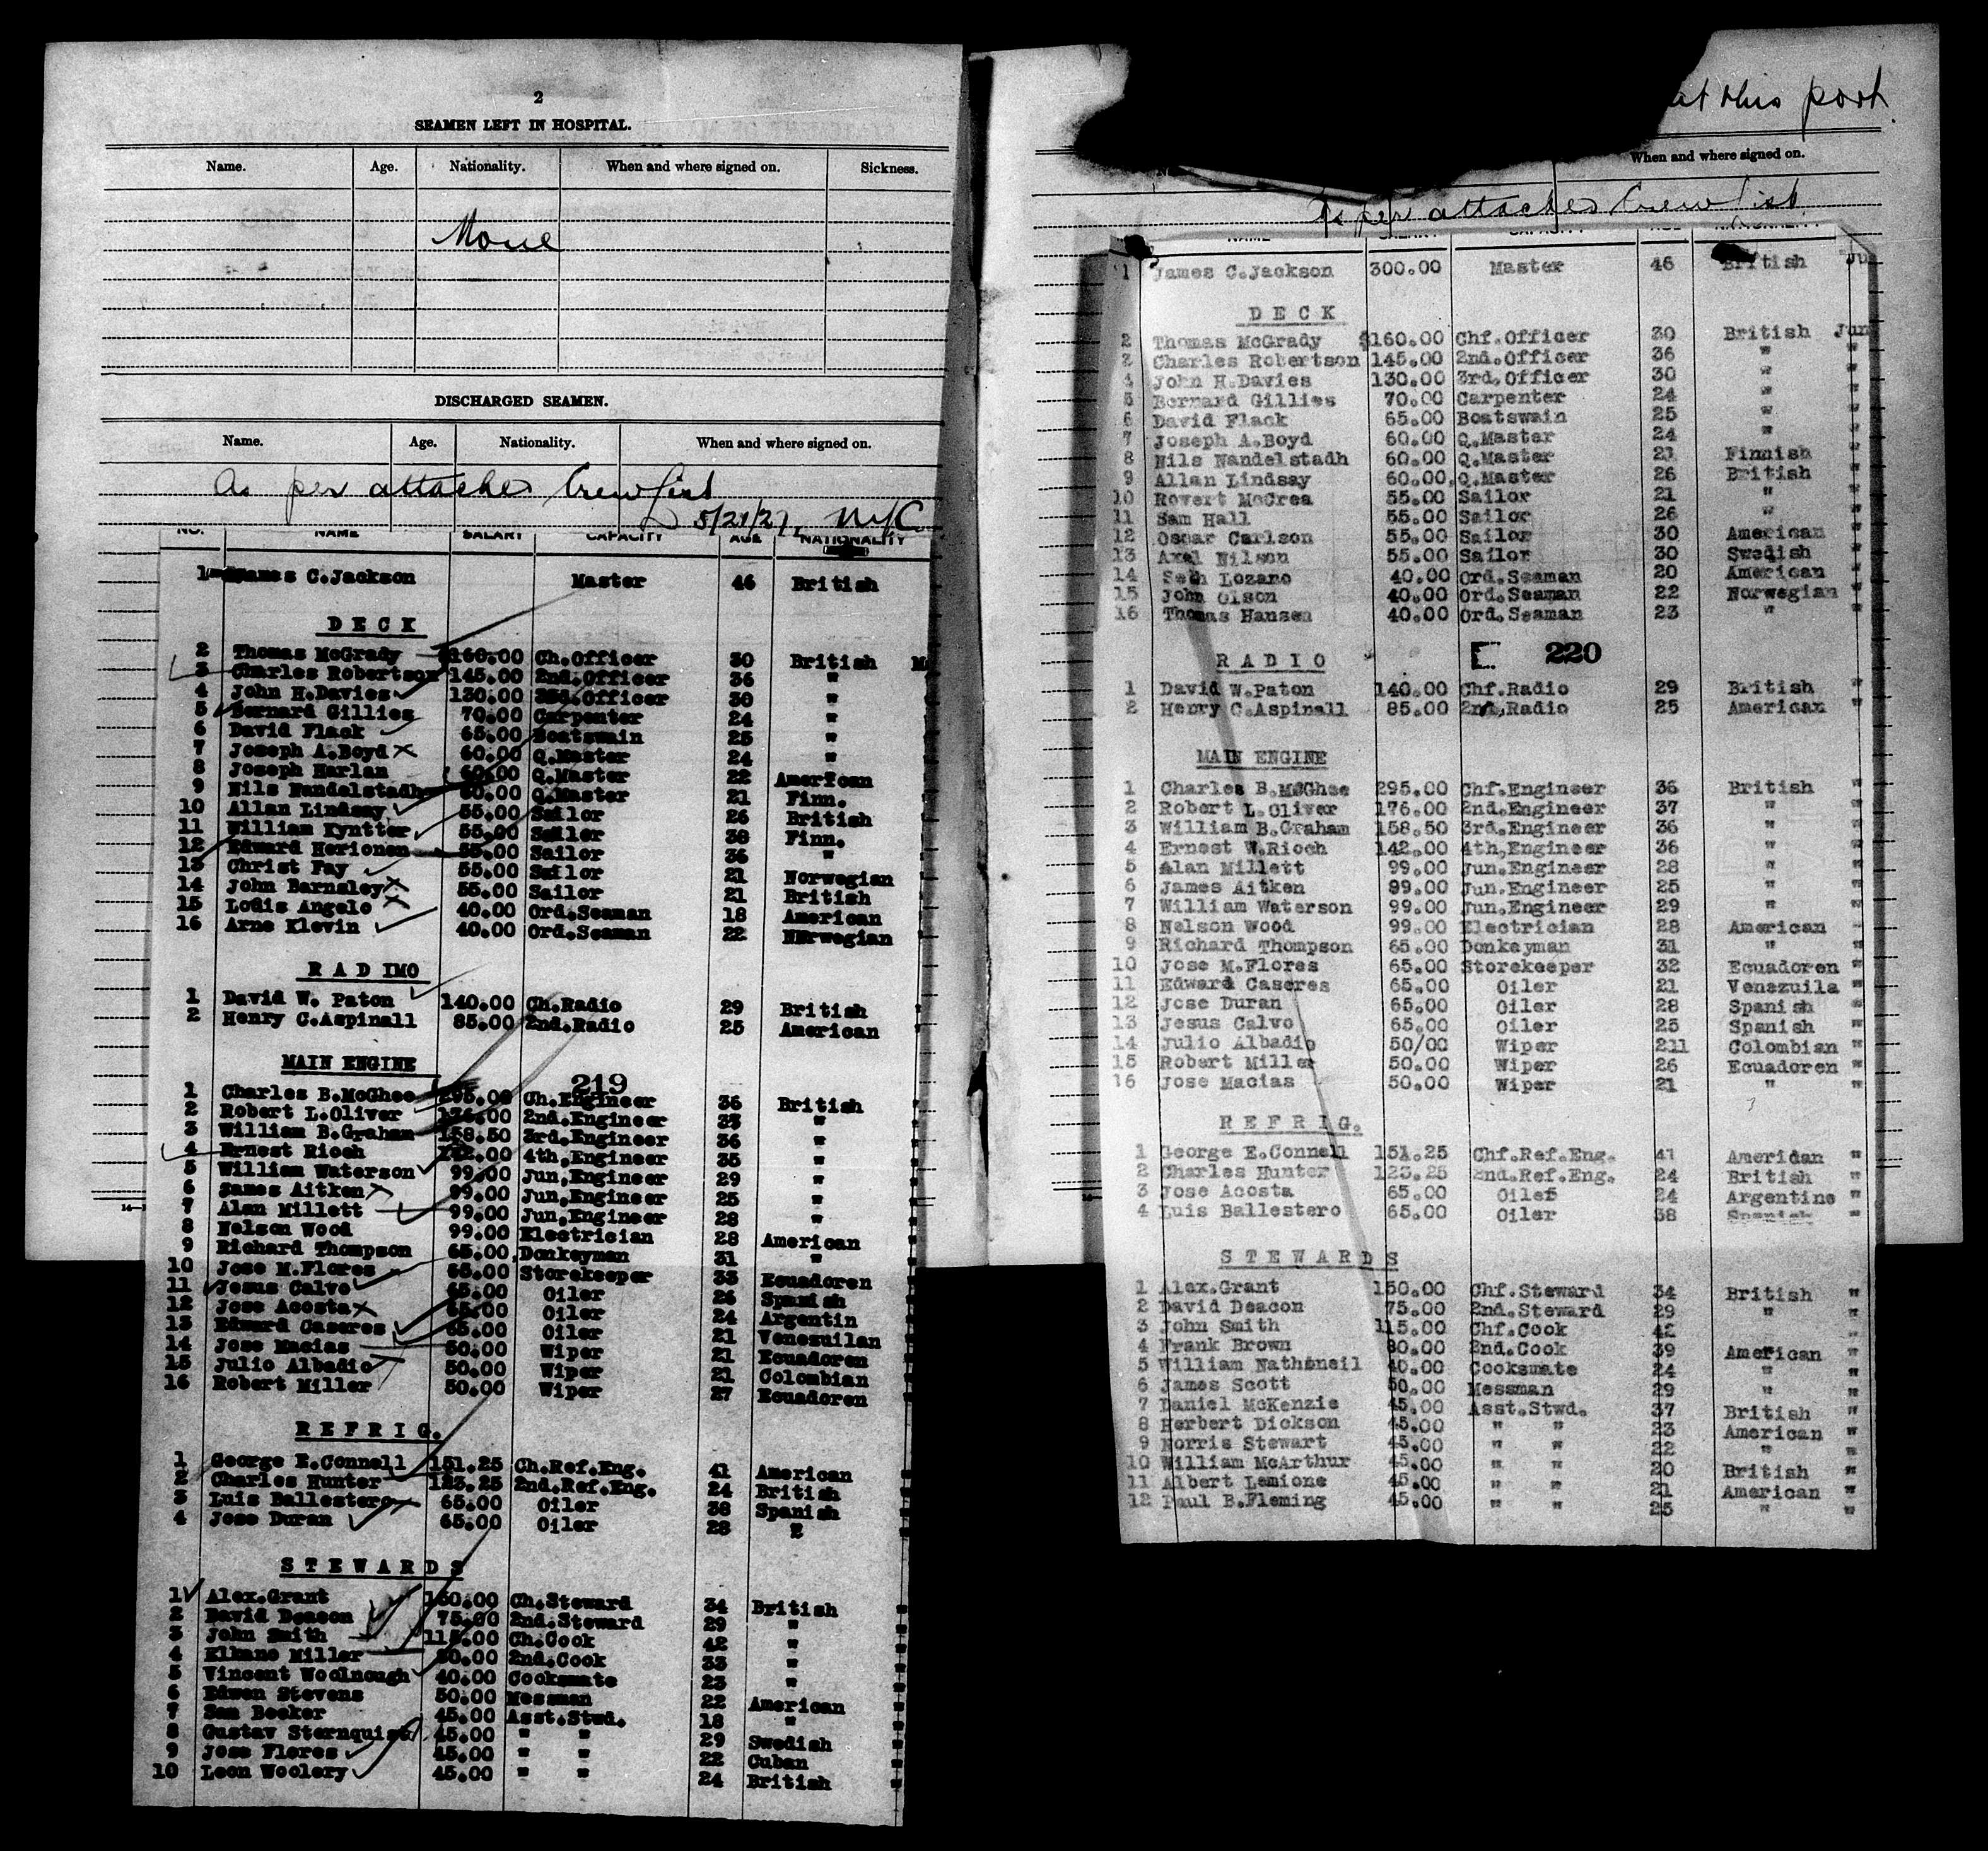 2
SEAMEN LEFT IN HOSPITAL.
Name. Age. Nationality. When and where signed on. Sickness.
None
DISCHARGED SEAMEN.
Name. Age. Nationality. When and where signed on.
As per attached Crew List
5/21/27, N.Y.C.
NO. NAME SALARY CAPACITY AGE NATIONALITY
1 James C.Jackson Master 46 British
DECK
2 Thomas McGrady $160.00 Ch.Officer 30 British
3 Charles Robertson 145.00 2nd.Officer 36 "
4 John H.Davies 130.00 3rd.Officer 30 "
5 Bernard Gillies 70.00 Carpenter 24 "
6 David Flack 65.00 Boatswain 25 "
7 Joseph A.Boyd 60.00 Q.Master 24 "
8 Joseph Harlan 60.00 Q.Master 22 American
9 Nils Nandelstadh 60.00 Q.Master 21 Finn.
10 Allan Lindsay 55.00 Sailor 26 British
11 William Kyntter 55.00 Sailor 38 Finn.
12 Edward Herionen 55.00 Sailor 36 "
13 Christ Fay 55.00 Sailor 21 Norwegian
14 John Barnsley 55.00 Sailor 21 British
15 Lodis Angelo 40.00 Ord.Seaman 18 American
16 Arne Klevin 40.00 Ord.Seaman 22 Norwegian
RADIMO
1 David W. Paton 140.00 Ch.Radio 29 British
2 Henry C.Aspinall 85.00 2nd.Radio 25 American
MAIN ENGINE
219
1 Charles B.McGhee 295.00 Ch.Engineer 36 British
2 Robert L.Oliver 176.00 2nd.Engineer 37 "
3 William B.Graham 158.50 3rd.Engineer 36 "
4 Ernest Rioch 142.00 4th,Engineer 35 "
5 William Waterson 99.00 Jun,Engineer 29 "
6 James Aitken 99.00 Jun,Engineer 25 "
7 Alan Millett 99.00 Jun,Engineer 28 "
8 Nelson Wood 99.00 Electrician 28 American
9 Richard Thompson 65.00 Donkeyman 31 "
10 Jose M.Flores 65.00 Storekeeper 33 Ecuadoren
11 Jesus Calvo 65.00 Oiler 26 Spanish
12 Jose Acosta 65.00 Oiler 24 Argentin
13 Edward Caseres 65.00 Oiler 21 Venezuilan
14 Jose Macias 50.00 Wiper 21 Ecuadoren
15 Julio Albadio 50.00 Wiper 21 Colombian
16 Robert Miller 50.00 Wiper 27 Ecuadoren
REFRIG.
1 George E.Connell 151.25 Ch.Ref.Eng. 41 American
2 Charles Hunter 123.25 2nd.Ref.Eng. 24 British
3 Luis Ballestero 65.00 Oiler 38 Spanish
4 Jose Duran 65.00 Oiler 28 2
STEWARDS
1 Alex.Grant 150.00 Ch.Steward 34 British
2 David Deacon 75.00 2nd.Steward 29 "
3 John Smith 115.00 Ch.Cook 42 "
4 Elkano Miller 80.00 2nd.Cook 33 "
5 Vincent Woolnough 40.00 Cooksmate 23 "
6 Edwen Stevens 50.00 Messman 22 American
7 Sam Becker 45.00 Asst.Stwd. 18 "
8 Gustav Sternquist 45.00 " " 29 Swedish
9 Jose Flores 45.00 " " 22 Cuban
10 Leon Woolery 45.00 " " 24 British
at this port.
When and where signed on.
As per attached Crew List
NAME SALARY CAPACITY AGE NATIONALITY
1 James C.Jackson 300.00 Master 46 British
DECK
2 Thomas McGrady $160.00 Chf.Officer 30 British Jun
3 Charles Robertson 145.00 2nd.Officer 36 " "
4 John H.Davies 130.00 3rd.Officer 30 " "
5 Bernard Gillies 70.00 Carpenter 24 " "
6 David Flack 65.00 Boatswain 25 " "
7 Joseph A.Boyd 60.00 Q.Master 24 " "
8 Nils Nandelstadh 60.00 Q.Master 21 Finnish "
9 Allan Lindsay 60.00 Q.Master 26 British "
10 Rovert McCrea 55.00 Sailor 21 " "
11 Sam Hall 55.00 Sailor 26 " "
12 Oscar Carlson 55.00 Sailor 30 American "
13 Axel Nilson 55.00 Sailor 30 Swedish "
14 Seth Lozano 40.00 Ord.Seaman 20 American "
15 John Olson 40.00 Ord.Seaman 22 Norwegian "
16 Thomas Hansen 40.00 Ord.Seaman 23 " "
E 220
RADIO
1 David W.Paton 140.00 Chf.Radio 29 British "
2 Henry C.Aspinall 85.00 2nd,Radio 25 American "
MAIN ENGINE
1 Charles B.McGhee 295.00 Chf.Engineer 36 British "
2 Robert L.Oliver 176.00 2nd.Engineer 37 " "
3 William B.Graham 158.50 3rd.Engineer 36 " "
4 Ernest W.Rioch 142.00 4th,Engineer 36 " "
5 Alan Millett 99.00 Jun.Engineer 28 " "
6 James Aitken 99.00 Jun.Engineer 25 " "
7 William Waterson 99.00 Jun.Engineer 29 " "
8 Nelson Wood 99.00 Electrician 28 American "
9 Richard Thompson 65.00 Donkeyman 31 " "
10 Jose M.Flores 65.00 Storekeeper 32 Ecuadoren "
11 Edward Caseres 65.00 Oiler 21 Venezuila "
12 Jose Duran 65.00 Oiler 28 Spanish "
13 Jesus Calvo 65.00 Oiler 25 Spanish "
14 Julio Albadio 50/00 Wiper 211 Colombian "
15 Robert Miller 50.00 Wiper 26 Ecuadoren "
16 Jose Macias 50.00 Wiper 21 " "
REFRIG.
1 George E.Connell 151.25 Chf.Ref.Eng. 41 American "
2 Charles Hunter 123.25 2nd.Ref.Eng. 24 British "
3 Jose Acosta 65.00 Oiler 24 Argentine "
4 Luis Ballestero 65.00 Oiler 38 Spanish "
STEWARDS
1 Alex.Grant 150.00 Chf.Steward 34 British "
2 David Deacon 75.00 2nd.Steward 29 " "
3 John Smith 115.00 Chf.Cook 42 "
4 Frank Brown 80.00 2nd.Cook 39 American "
5 William Nathaneil 40.00 Cooksmate 24 " "
6 James Scott 50.00 Messman 29 " "
7 Daniel McKenzie 45.00 Asst.Stwd. 37 British "
8 Herbert Dickson 45.00 " " 23 American "
9 Norris Stewart 45.00 " " 22 " "
10 William McArthur 45.00 " " 20 British "
11 Albert Lemione 45.00 " " 21 American "
12 Paul B.Fleming 45.00 " " 25 " "